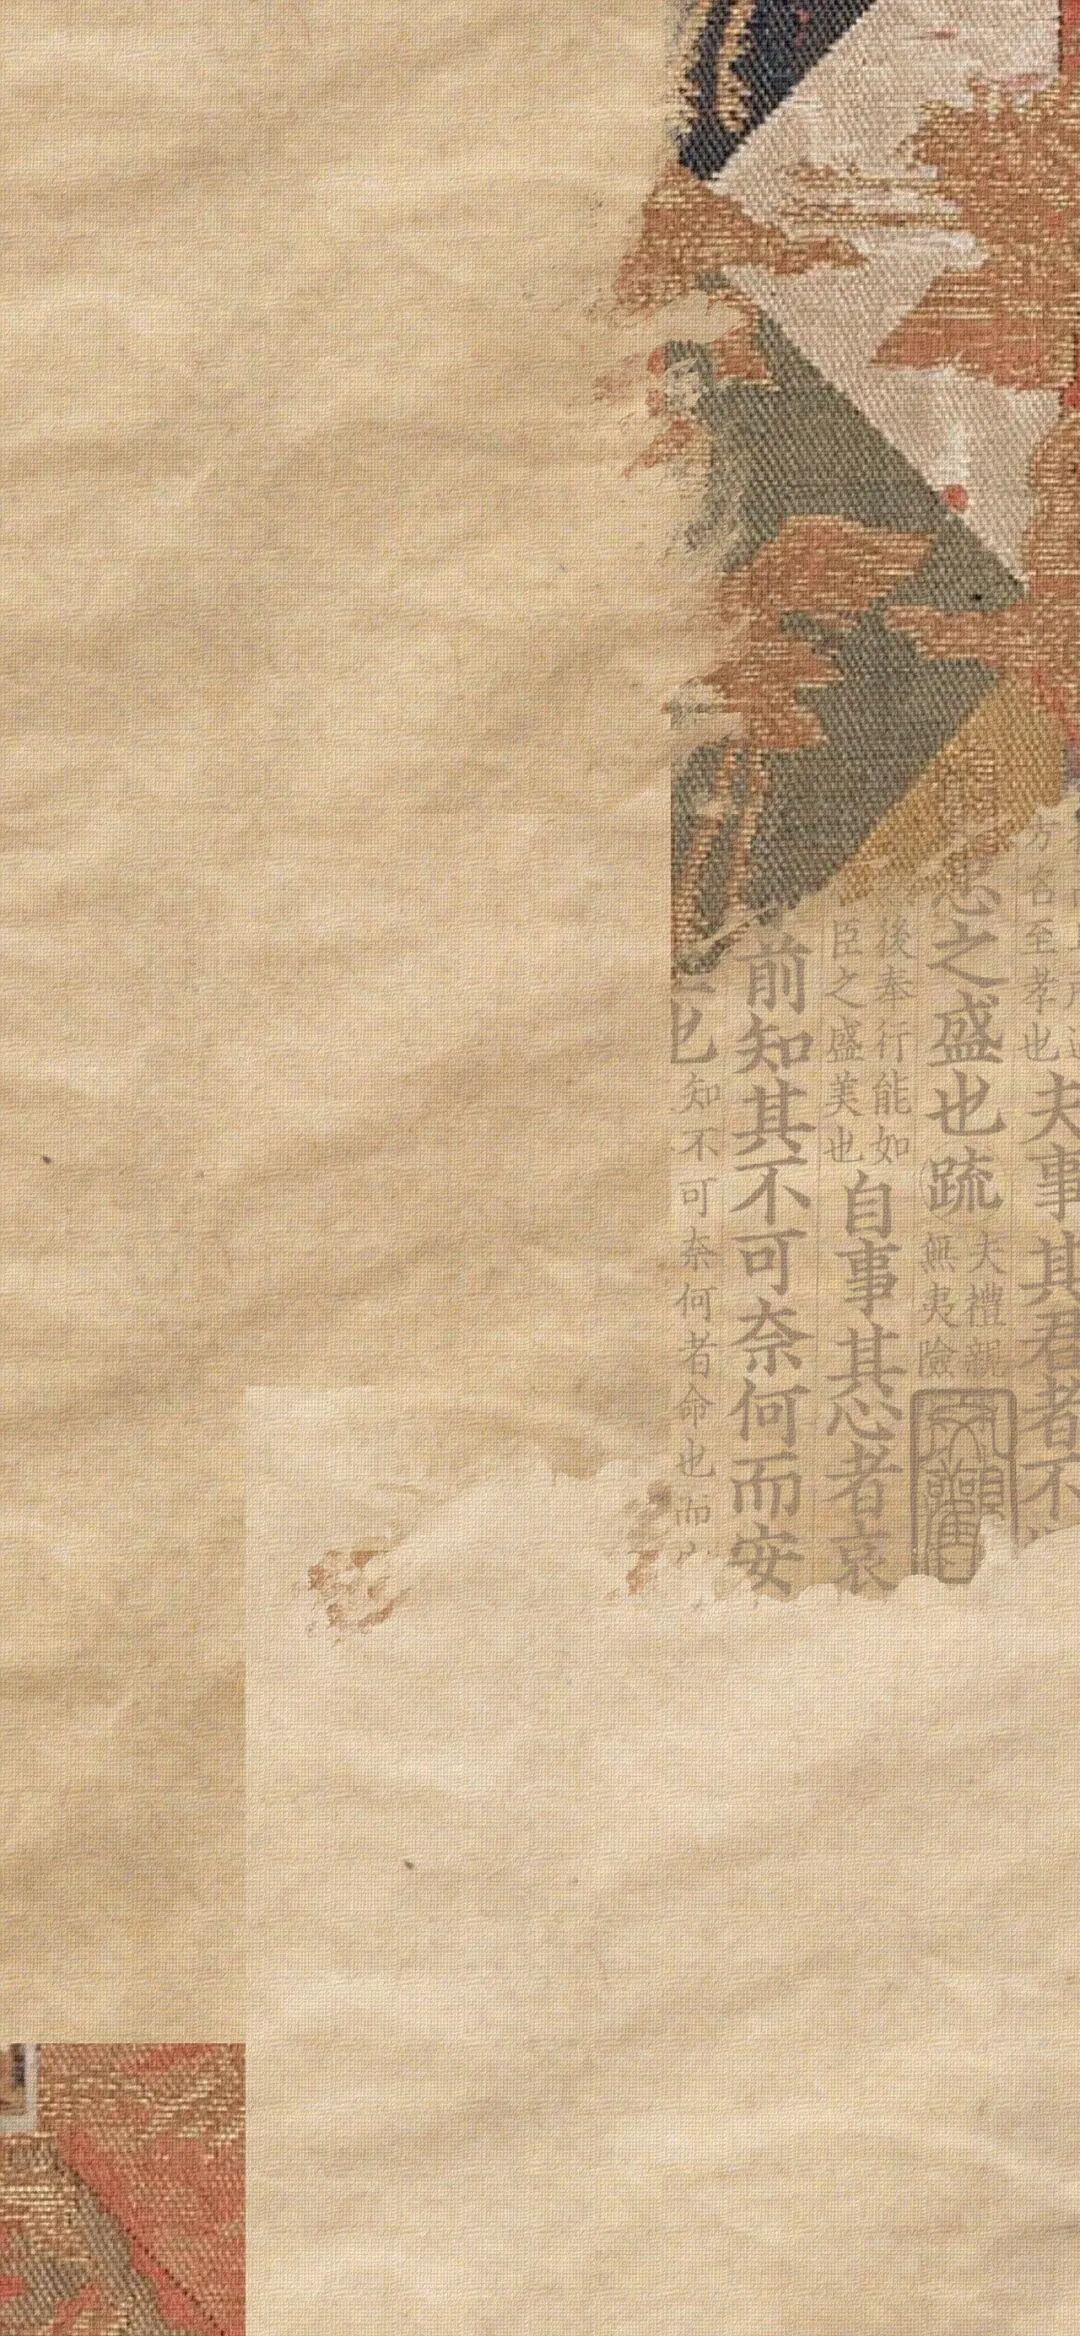 方名至孝也夫事其君者不
忠之盛也疏
夫禮親
無夷險
後奉行能如
臣之盛美也
自事其心者哀
前知其不可奈何而安
也知不可奈何者命也而